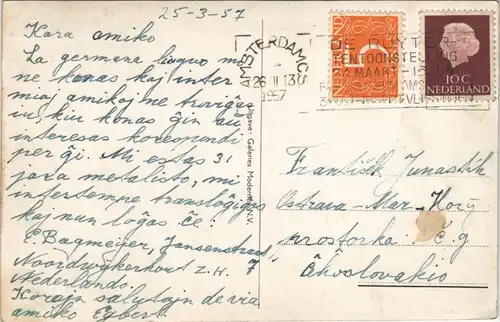 25-3-57
Kara amiko
La germana lingvo mi
ne konas kaj inter
miaj amikoj ne troviĝis
iu, kiu konas ĝin aŭ
interesas korespondi
per ĝi. Mi estas 31
jara metalisto, mi
intertempe transloĝiĝis
kaj nun loĝas ĉe:
E. Bagmeijer, Jansenstraat 7
Noordwijkerhout z.H.
Nederlando.
Korajn salutojn de via
amiko Egbert.
Uitgave: Galeries Modernes N.V.
AMSTERDAM CS
26 II 13
1957
DE RUYTER
TENTOONSTELLING
MAART
VLISSINGEN
10
NEDERLAND
10 C
František Junastik
Ostrava - Mar - Hory
prostorka č. 9
Ĉeĥoslovakio